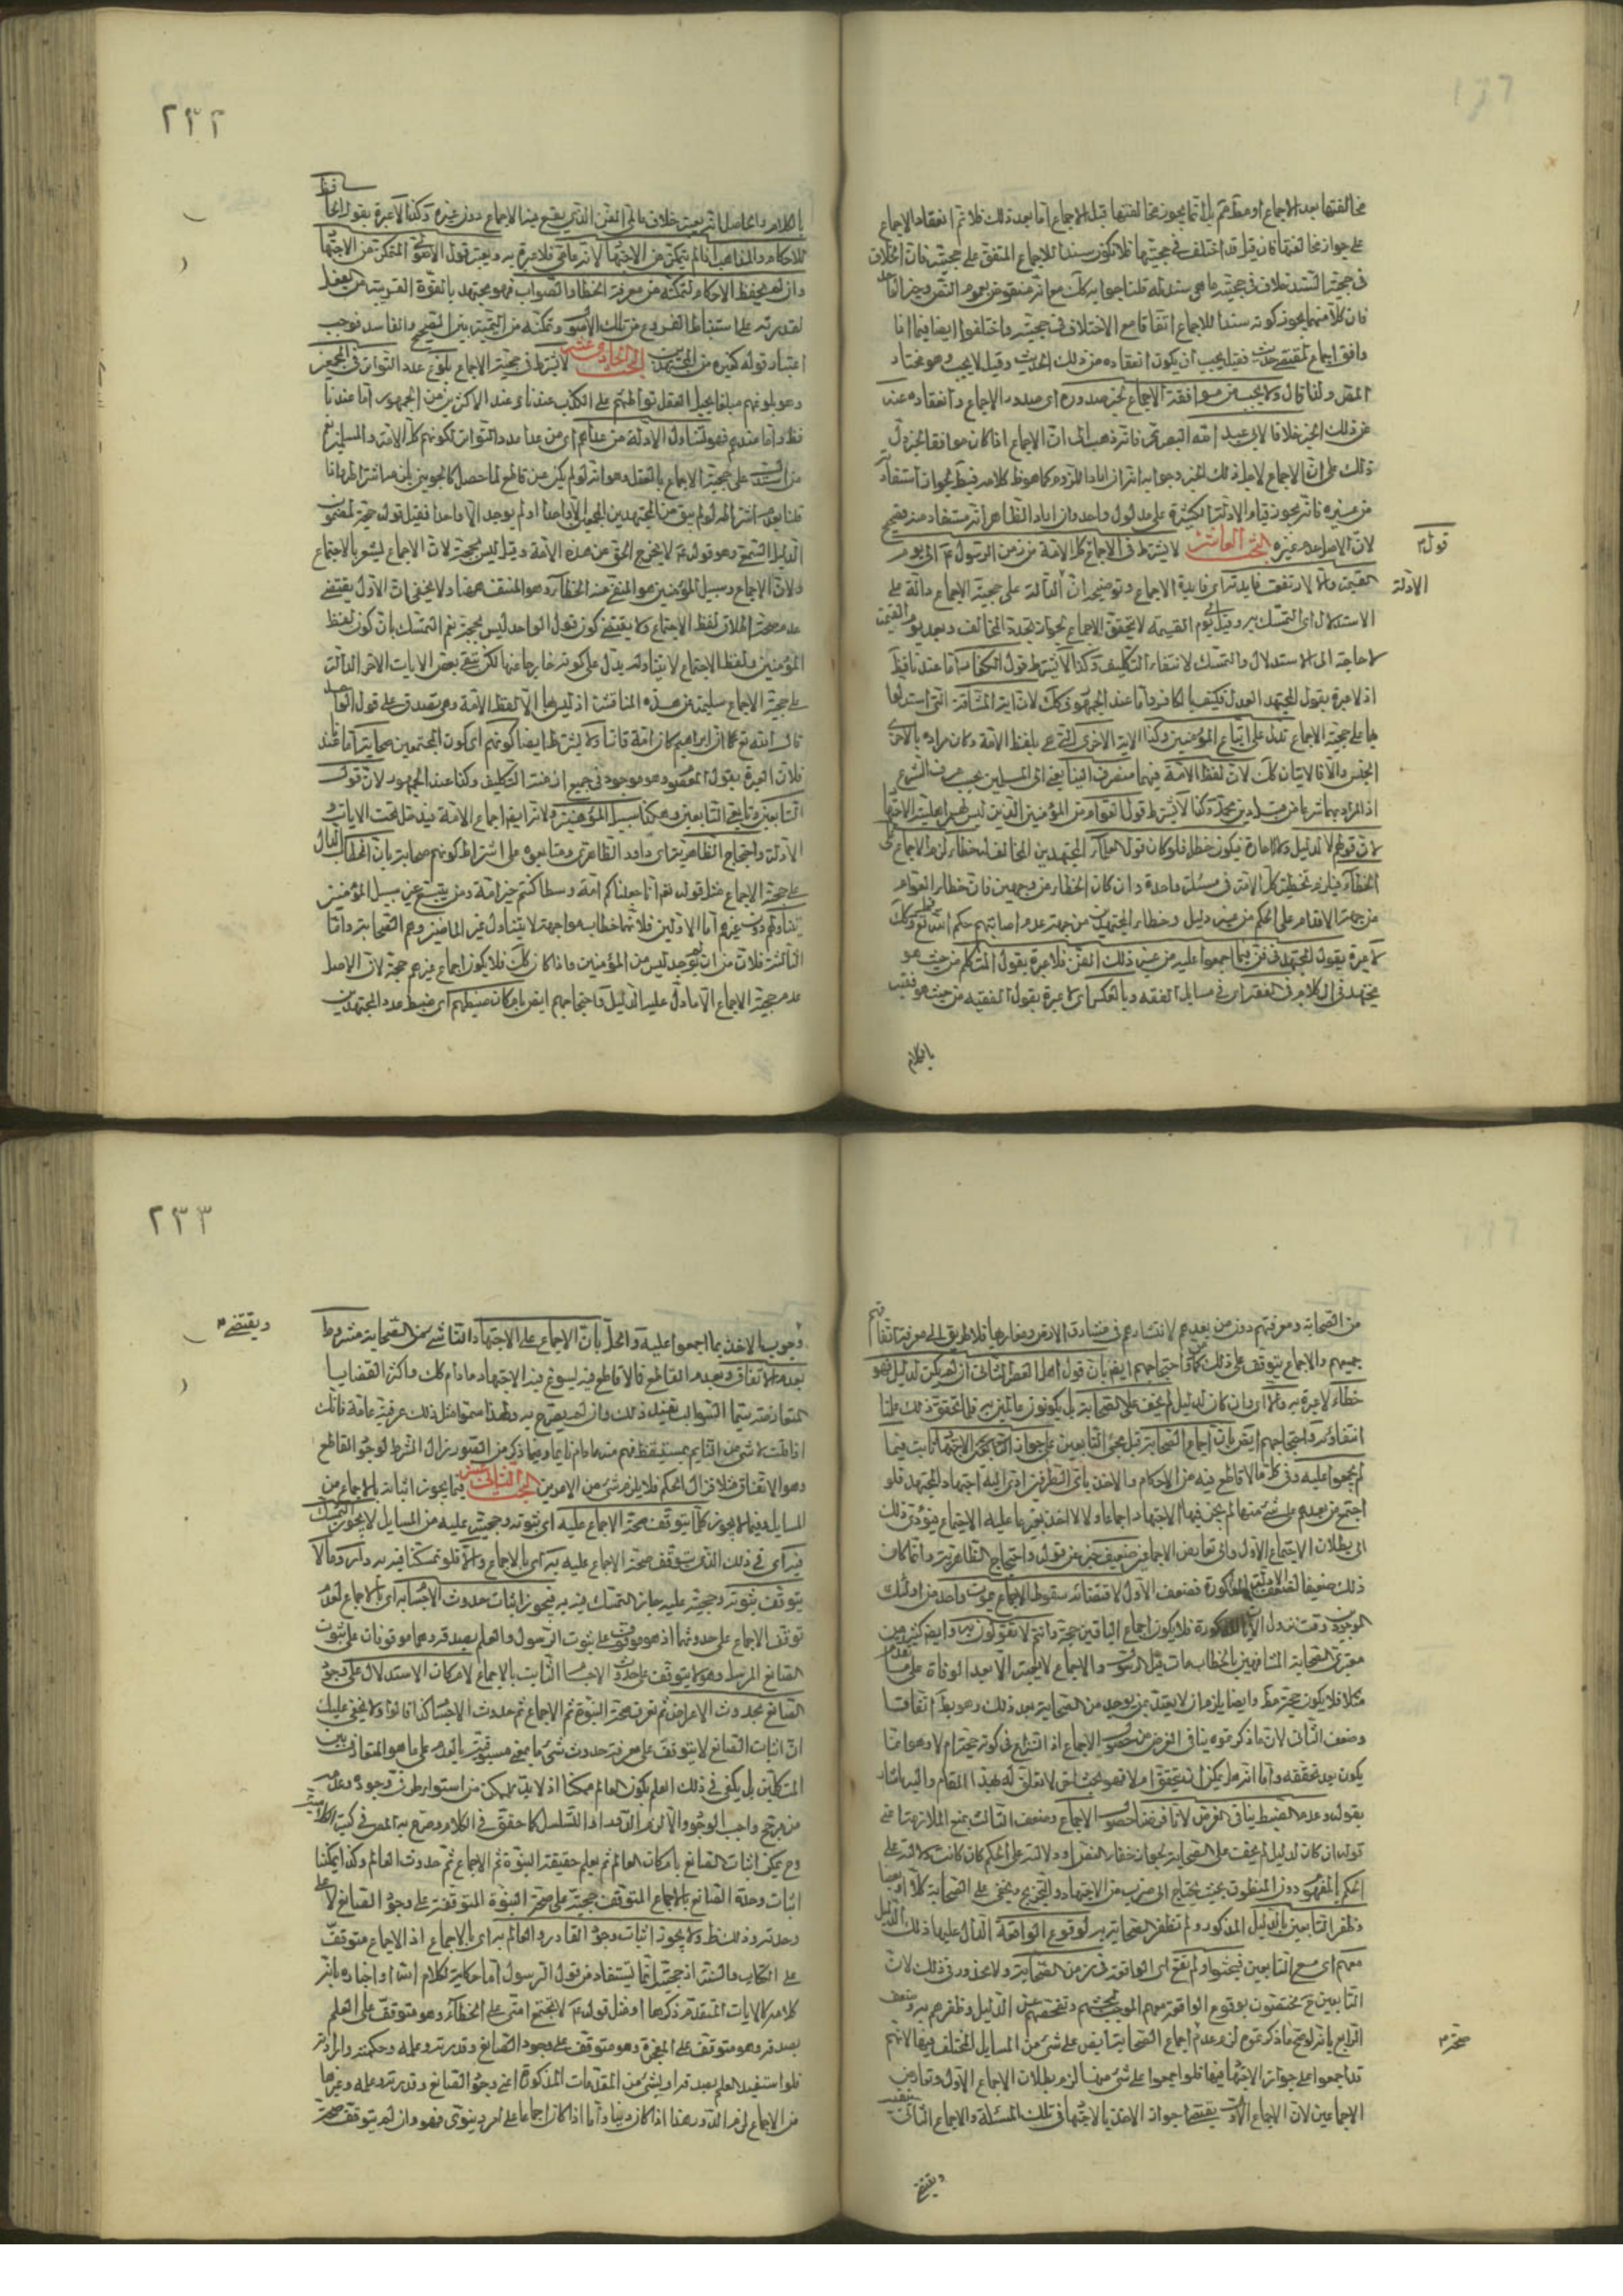 مخالفتها بعد الاجماع او مطلقا بل انما يجوز مخالفتها قبل الاجماع اما بعد ذلك فلا ثم انعقاد الاجماع
على جواز مخالفتها فان قيل قد اختلف في حجيتها فلا تكون سندا للاجماع المتفق على حجيته فان الخلاف
في حجية السند خلاف في حجية ما هي سند له قلنا جوابه
فان كلا منهما يجوز كونه سندا للاجماع اتفاقا مع الاختلاف في حجيته واختلفوا ايضا فيما اذا
وافق اجماع لمقتضى حديث فقيل يجب ان يكون انعقاده من ذلك الحديث وقيل لا يجب وهو مختار
المص ولذا قال ولا يجب من موافقة الاجماع لخبر صدوره اى صدور الاجماع وانعقاده عنه
عن ذلك الخبر خلافا لابي عبد الله البصرى فانه ذهب الى ان الاجماع اذا كان موافقا لخبر دل
ذلك على ان الاجماع لاجل ذلك الخبر وجوابه انه ان اراد اللزوم كما هو ظ كلامه فبط لجواز استفادته
من غيره فانه يجوز قيام الادلة الكثيرة على مدلول واحد وان اراد الظاهر انه مستفاد منه فصحيح
لان الاصل عدم غيره البحث العاشر لا يشترط في الاجماع كل الامة من زمن الرسول الى يوم
القيمة والا لارتفع فايدته اى فايدة الاجماع وتوضيحه ان الدالة على حجية الاجماع دالة على
الاستدلال اى التمسك به وقبل يوم القيمة لا يتحقق الاجماع لجواز تجدد المخالف وبعد يوم القيمة
لا حاجة الى الاستدلال والتمسك لانتفاء التكليف وكذا لا يشترط قول الكفار اما عندنا فظ
اذ لا عبرة بقول المجتهد العدل فكيف بالكافر واما عند الجمهور فكك لان اية المشاقة التي استدلوا
بها على حجية الاجماع تدل على اتباع المؤمنين وكذا الاية الاخرى التي هي بلفظ الامة وكان مراده بالاخرى
الجنس والا فالايتان كك لان لفظ الامة فيهما منصرف الينا يعنى الى المسلمين بحسب عرف الشرع
وكذا لا يشترط قول العوام من المؤمنين الذين ليس لهم اهلية الاجتهاد
لان قولهم لا لدليل ولا امارة فيكون خطأ فلو كان قول العلماء المجتهدين المخالف له خطاء لزم الاجماع على
الخطاء فيلزم تخطئة كل الامة في مسئلة واحدة وان كان الخطاء من وجهين فان خطاء العوام
من جهة الاقدام على الحكم من غير دليل وخطاء المجتهدين من جهة عدم اصابتهم حكم الله تع وكك
لا عبرة بقول المجتهد في فن فيما اجمعوا عليه من غير ذلك الفن فلا عبرة بقول المتكلم من حيث هو
مجتهد في الكلام في الفقه اى في مسايل الفقه وبالعكس اى لا عبرة بقول الفقيه من حيث هو فقيه
بالكلام
قول
الادلة
٢٣٢
بالكلام والحاصل انه يعتبر خلاف عالم الفن الذي يقع فيه الاجماع دون غيره وكذا لا عبرة بقول الحافظ
للاحكام والمذاهب اذا لم يتمكن من الاجتهاد لانه عامى فلا عبرة به ويعتبر قول الاصولى المتمكن من الاجتهاد
وان لم يحفظ الاحكام لتمكنه من معرفة الخطاء والصواب فهو مجتهد بالقوة القريبة من الفعل
لقدرته على استنباط الفروع من تلك الاصول وتمكنه من التمييز بين الصحيح والفاسد فوجب
اعتبار قوله كغيره من المجتهدين البحث الحادي عشر لا يشترط في حجية الاجماع بلوغ عدد التواتر في المجمعين
وهو بلوغهم مبلغا يحيل العقل تواطئهم على الكذب عندنا وعند الاكثرين من الجمهور اما عندنا
فظ واما عندهم فهو لتناول الادلة من عداهم اى من عدا عدد التواتر لكونهم كل الامة والمسلمين نعم
من استدل على حجية الاجماع بالعقل وهو انه لو لم يكن عن قاطع لما حصل كالجويني يلزمه اشتراطه فاذا
قلنا بعدم اشتراطه لو لم يبق من المجتهدين الا واحدا او لم يوجد الا واحدا فقيل قوله حجة لمضمون
الدليل السمعي وهو قوله لا يخرج الحق عن هذه الامة وقيل ليس بحجة لان الاجماع يشعر بالاجتماع
ولان الاجماع وسبيل المؤمنين هو المنفى عنه الخطاء وهو المنتف هنا ولا يخفى ان الاول يقتضى
عدم صحة اطلاق لفظ الاجتماع ولا يقتضى كون قول الواحد ليس بحجة نعم التمسك بان كون لفظ
المؤمنين ولفظ الاجتماع لا يتناوله يدل على كونه خارجا عنها لكن تبقى بعض الايات الاخر الدالة
على حجية الاجماع سليمة عن هذه المناقشة اذ ليس فيها الا لفظ الامة وهي تصدق على قول الواحد
قال الله تع ان ابراهيم كان امة قانتا ولا يشترط ايضا كونهم اى كون المجتمعين صحابة اما عندنا
فلان العبرة بقول المعصوم وهو موجود في جميع ازمنة التكليف وكذا عند الجمهور لان قول
التابعين وتابعى التابعين وهكذا سبيل المؤمنين ولانه ايضا اجماع الامة فيدخل تحت الايات و
الادلة واحتجاج الظاهرية اى داود الظاهري ومتابعوه على اشتراط كونهم صحابة بان الخطاب الدال
على حجية الاجماع مثل قوله تعالى انا جعلناكم امة وسطا كنتم خير امة ومن يتبع غير سبيل المؤمنين
يتناولهم دون غيرهم اما الاولين فلانهما خطاب مواجهة لا يتناول غير الحاضرين وهم الصحابة واما
الثالثة فلان من لم يوجد ليس من المؤمنين واذا كان كك فلا يكون اجماع غيرهم حجة لان الاصل
عدم حجية الاجماع الا ما دل عليه الدليل واحتجاجهم ايضا بامكان ضبطهم اى ضبط عدد المجتهدين
من الصحابة ومعرفتهم دون من بعدهم لانتشارهم في مشارق الارض ومغاربها فلا طريق الى معرفة اتفاقهم
جميعهم والاجماع يتوقف على ذلك واحتجاجهم ايضا بان قول اهل العصر الثاني ان لم يكن لدليل فهو
خطاء لا عبرة به والا اى وان كان لدليل لم يخف على الصحابة بل يكونون عالمين به فلما تحقق ذلك علمنا
انتفاؤه واحتجاجهم ايضا بان اجماع الصحابة قبل مجئ التابعين على جواز الاجتهاد ثابت فيما
لم يجمعوا عليه وفي كل ما لا قاطع فيه من الاحكام والاخذ باى الطرفين ادى اليه اجتهاد المجتهد فلو
اجتمع من بعدهم على شئ منها لم يجز فيها الاجتهاد اجماعا ولا الاخذ بغير ما عليه الاجتماع فيؤدى ذلك
الى بطلان الاجتماع الاول والى تعارض الاجماعين ضعيف خبر عن قوله واحتجاج الظاهرية وانما كان
ذلك ضعيفا لضعف الادلة المذكورة فضعف الاول لاقتضائه سقوط الاجماع بموت واحد من اولئك
الموجودين وقت نزول الاية المذكورة فلا يكون اجماع الباقين حجة وانتم لا تقولون به وايضا كثير من
معتبرى الصحابة المشافهين بالخطاب مات قبل الرسول والاجماع لا يعتبر الا بعد الوفاة على ما تقدم
مثلا فلا يكون حجة مط وايضا يلزم ان لا يعتد بمن يوجد من الصحابة بعد ذلك وهو بط اتفاقا
وضعف الثاني لان ما ذكرتموه ينافى الفرض من حصول الاجماع اذ النزاع في كونه حجة ام لا وهو انما
يكون بعد تحققه واما انه هل يمكن ان يتحقق ام لا فهو بحث اخر لا تعلق له بهذا المقام واليه اشار
بقوله وعدم الضبط ينافى الفرض لانا فرضنا حصول الاجماع وضعف الثالث بمنع الملازمة اعني
قوله ان كان لدليل لم يخف على الصحابة لجواز خفاء النقل او دلالته على الحكم كان كانت دلالته على
الحكم بالمفهوم دون المنطوق بحيث يحتاج الى ضرب من الاجتهاد والترجيح ويخفى على الصحابة كلا او بعضا
وظفر التابعين بالدليل المذكور ولم تظفر الصحابة به لوقوع الواقعة الدال عليها ذلك الدليل
معهم اى مع التابعين فبحثوا ولم تقع الواقعة في زمن الصحابة ولا محذور في ذلك لان
التابعين ح مختصون بوقوع الواقعة معهم الموجب لبحثهم وتفحصهم عن الدليل وظفرهم به وضعف
الرابع بانه لو صح ما ذكرتموه لزم عدم اجماع الصحابة ايضا على شئ من المسايل المختلف فيها لانهم
قد اجمعوا على جواز الاجتهاد فيها فلو اجمعوا على شئ منها لزم بطلان الاجماع الاول وتعارض
الاجماعين لان الاجماع الاول يقتضى جواز الاخذ بالاجتهاد في تلك المسئلة والاجماع الثاني
ويقتضى
صحة
٢٣٣
ويقتضى
وجوب الاخذ بما اجمعوا عليه والحل بان الاجماع على الاجتهاد الناشئ من الصحابة مشروط
بعدم الاتفاق وبعدم القاطع فالا قاطع فيه يسوغ فيه الاجتهاد ما دام كك واكثر القضايا
المتعارضة سيما السوالب تفيد ذلك وان لم يصرح به ولهذا سموا مثل ذلك عرفية عامة فانك
اذا قلت لا شئ من النايم بمستيقظ فهم منه ما دام نايما وفيما ذكر من الصور زال الشرط لوجود القاطع
وهو الاتفاق مثلا فزال الحكم فلا يلزم شئ من الامرين البحث الثاني عشر فيما يجوز اثباته بالاجماع من
المسايل وفيما لا يجوز كلما يتوقف صحة الاجماع عليه اى ثبوته وحجيته عليه من المسايل لا يجوز التمسك
فيه اى في ذلك الذى يتوقف صحة الاجماع عليه به اى بالاجماع والا فلو تمسكنا فيه به دار وما لا
يتوقف ثبوته وحجيته عليه جاز التمسك فيه به فيجوز اثبات حدوث الاجسام به اى بالاجماع لعدم
توقف الاجماع على حدوثها اذ هو موقوف على ثبوت الرسول والعلم بصدقه وهما موقوفان على ثبوت
الصانع المرسل وهو لا يتوقف على حدوث الاجسام الثابت بالاجماع لامكان الاستدلال على وجود
الصانع بحدوث الاعراض ثم نعرف صحة النبوة ثم الاجماع ثم حدوث الاجسام كذا قالوا ولا يخفى عليك
ان اثبات الصانع لا يتوقف على معرفة حدوث شئ ما بمعنى مسبوقيته بالعدم على ما هو المتعارف بين
المتكلمين بل يكفى في ذلك العلم بكون العالم ممكنا اذ لا بد للممكن من استواء طرفى وجوده وعدمه
من مرجح واجب الوجود والا لزم الدور او التسلسل كما حقق في الكلام وصرح به المص في كتبه الكلامية
وح يمكن اثبات الصانع بامكان العالم ثم يعلم حقيقة النبوة ثم الاجماع ثم حدوث العالم وكذا يمكننا
اثبات وحدة الصانع بالاجماع المتوقف حجيته على صحة النبوة المتوقفة على وجود الصانع لا على
وحدته وذلك ظ ولا يجوز اثبات وجود القادر والعالم به اى بالاجماع اذ الاجماع متوقف
على الكتاب والسنة اذ حجيته انما يستفاد من قول الرسول اما حكاية لكلام الله او اخباره بانه
كلامه كالايات المتقدمة ذكرها او مثل قوله لا تجتمع امتى على الخطاء وهو متوقف على العلم
بصدقه وهو متوقف على المعجزة وهو متوقف على وجود الصانع وقدرته وعلمه وحكمته وارادته
فلو استفيد العلم بصدقه او بشئ من المقدمات المذكورة اعنى وجود الصانع وقدرته وعلمه وغيرها
من الاجماع لزم الدور هذا اذا كان دينيا واما اذا كان اجماعا على امر دنيوى فهو وان لم يتوقف صحة